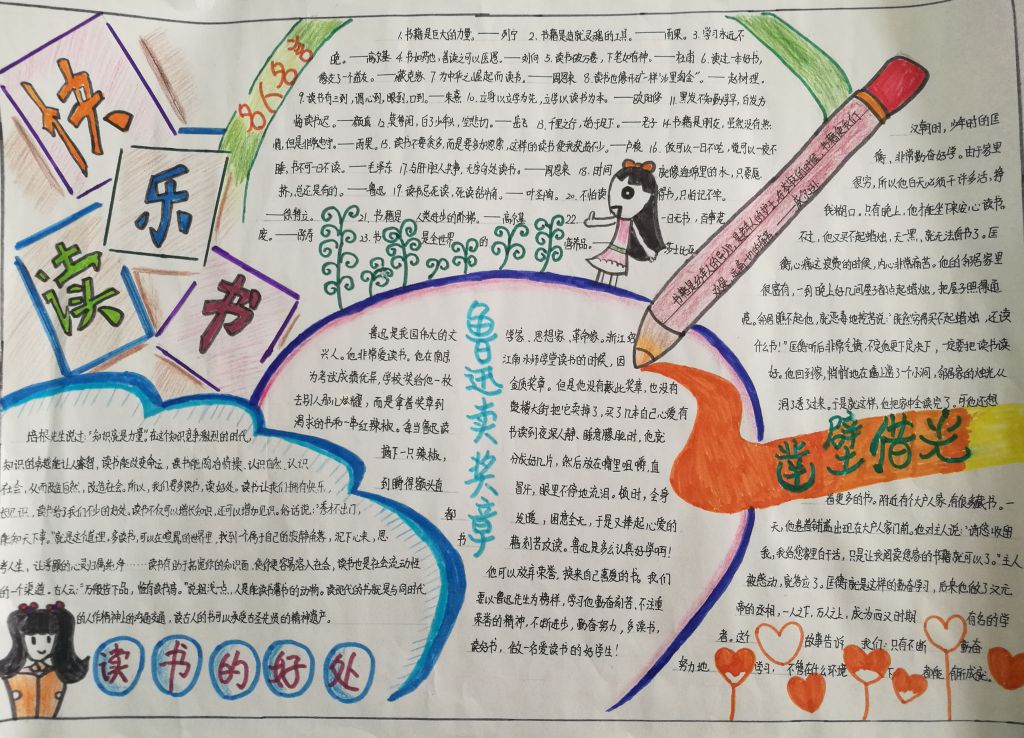 快
乐
读
书
名人名言
1.书籍是巨大的力量。——列宁 2.书籍是造就灵魂的工具。——雨果。3.学习永远不
晚。——高尔基 4.书犹药也,善读之可以医愚。——刘向 5.读书破万卷,下笔如有神。——杜甫 6.读过一本好书,
像交了个益友。——臧克家 7.为中华之崛起而读书。——周恩来 8.读书也像开矿一样"沙里淘金"。——赵树理。
9.读书有三到,谓心到,眼到,口到。——朱熹 10.立身以立学为先,立学以读书为本。——欧阳修 11.黑发不知勤学早,白首方
悔读书迟。——颜真 12.莫等闲,白了少年头,空悲切。——岳飞 13.千里之行,始于足下。——老子 14.书籍是朋友,虽然没有热
情,但是非常忠实。——雨果。15.读书不要贪多,而是要多加思索,这样的读书使我获益不少。——卢梭 16.饭可以一日不吃,觉可以一夜不
睡,书不可一日不读。——毛泽东 17.与肝胆人共事,无字句处读书。——周恩来 18.时间 就像海绵里的水,只要愿
挤,总还是有的。——鲁迅 19.读书忌死读,死读钻牛角。——叶圣陶。20.不怕读 得少,只怕记不牢。
——徐特立。21.书籍是 人类进步的阶梯。——高尔基 22. 一日无书,百事荒
废。——陈寿 23.书 是全世界 的 营养品。—— 莎士比亚
书籍是给主人的导师,是老人的护士,在寂寞的时候,书籍使我们
鲁迅卖奖章
鲁迅是我国伟大的文 学家、思想家、革命家。浙江绍
兴人。他非常爱读书。他在南京 江南水师学堂读书的时候,因
为考试成绩优异,学校奖给他一枚 金质奖章。但是他没有戴此奖章,也没有
去别人那儿炫耀,而是拿着奖章到 鼓楼大街把它卖掉了,买了几本自己心爱有
渴求的书和一串红辣椒。每当鲁迅读 书读到夜深人静、睡意朦胧时,他就
摘下一只辣椒, 分成好几片,然后放在嘴里咀嚼,直
到嚼得额头直 冒汗,眼里不停地流泪。顿时,全身
发暖,困意全无,于是又捧起心爱的
书 籍刻苦攻读。鲁迅是多么认真好学啊!
他可以放弃荣誉,换来自己喜爱的书。我们
要以鲁迅先生为榜样,学习他勤奋刻苦,不注重
荣誉的精神,不断进步,勤奋努力,多读书,
读好书,做一名爱读书的好学生!
汉朝时,少年时的匡
衡,非常勤奋好学。由于家里
很穷,所以他白天必须干许多活,挣
钱糊口。只有晚上,他才能坐下来安心读书。
不过,他又买不起蜡烛,天一黑,就无法看书了。匡
衡心痛这浪费的时候,内心非常痛苦。他的邻居家里
很富有,一到晚上好几间屋子都点起蜡烛,把屋子照得通
亮。
什么书!"匡衡听后非常气愤,不过他更下定决下,一定要把读书读
好。他回到家,悄悄地在墙上凿了个小洞,邻居家的烛光从
洞了透过来。于是就这样,他把家中全读完了。可他还想
凿壁借光
看更多的书。附近有个大户人家,有很多藏书。一
天,他卷着铺盖出现在大户人家门前。他对主人说:"请您收留
我,我给您家里干活,只是让我阅读您家的书籍就可以了。"主人
被感动,就答应了。匡衡就是这样的勤奋学习,后来他做了汉元
帝的丞相,一人之下,万人之上,成为西汉时期 有名的学
者。这个 故事告诉 我们:只有不断 勤奋
努力地 学习, 不管在什么环境 下 都能 有所成就。
培根先生说过:"知识就是力量",在这个知识竞争激烈的时代,
知识的卓越能让人睿智,读书能改变命运,读书能陶冶情操、认识自然、认识
社会,从而改造自然,改造社会。所以,我们要多读书、读好处。读书让我们拥有快乐、
长见识,读书给了我们不少的益处。读书不仅可以增长知识,还可以增加见识。俗话说:"秀才不出门,
能知天下事。"就是这个道理,多读书,可以在喧嚣的世界里,找到个属于自己的寂静角落,沉下心来,思
考人生,让浮躁的心灵归属纯净……读书有助于拓宽你的知识面,使你更容易容入社会,读书也是在社会流动性
的一个渠道。古人云:"万般皆下品,惟有读书高。"说粗浅一点,人是能读书藉书的动物。读现代的书就是与同时代
的人作精神上的沟通交通,读古人的书可以承受古圣先贤的精神遗产。
读书的好处